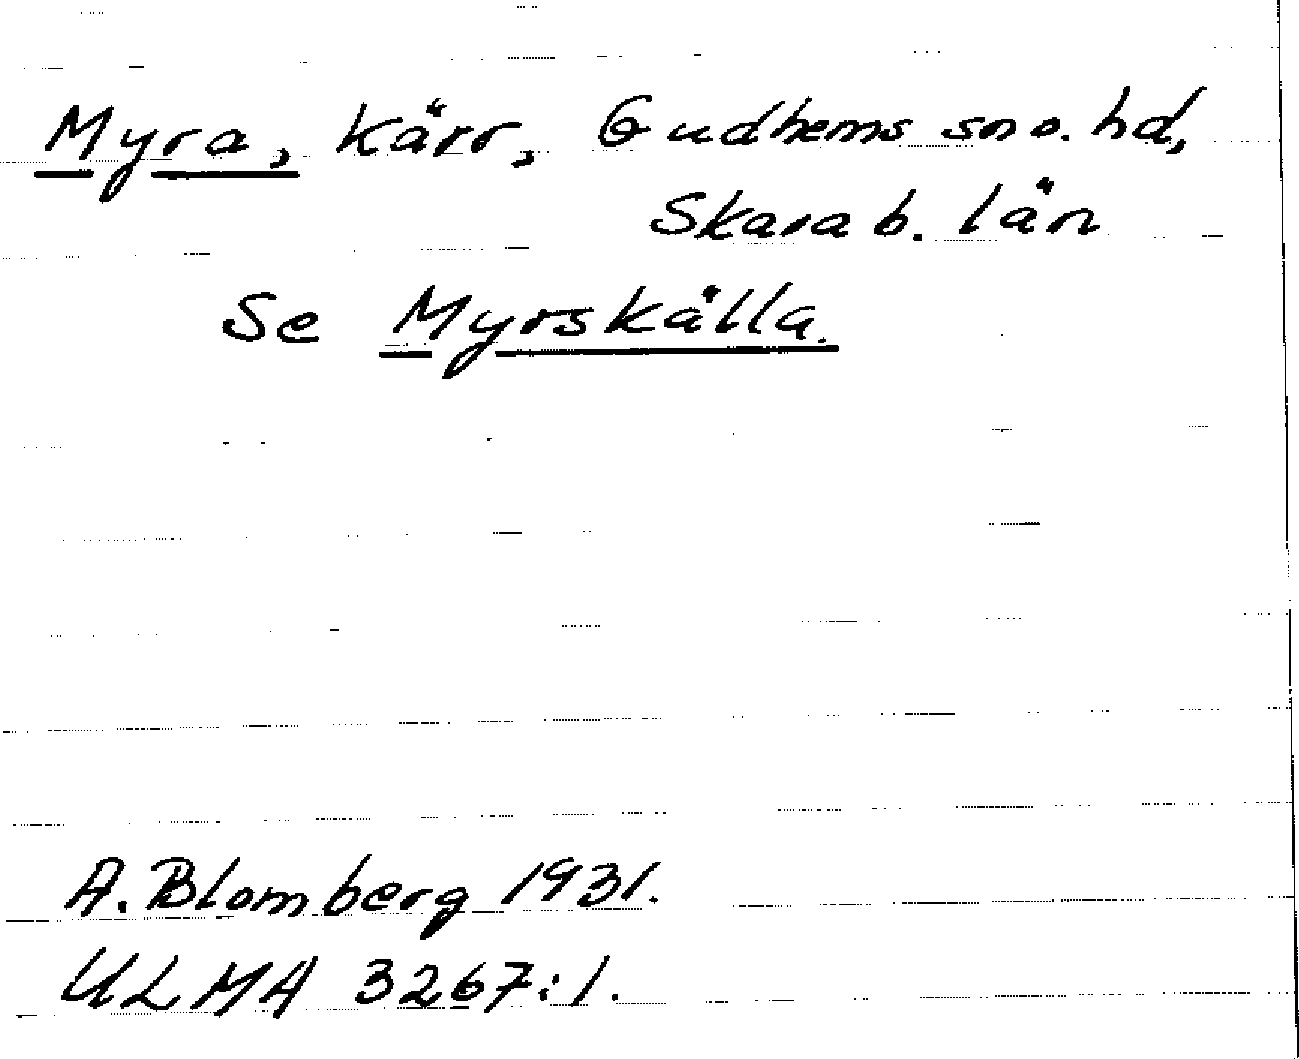 Myra, Kärr, Gudhems sn o. hd,
Skarab. län
Se Myrskälla.
A. Blomberg 1931.
ULMA 3267:1.